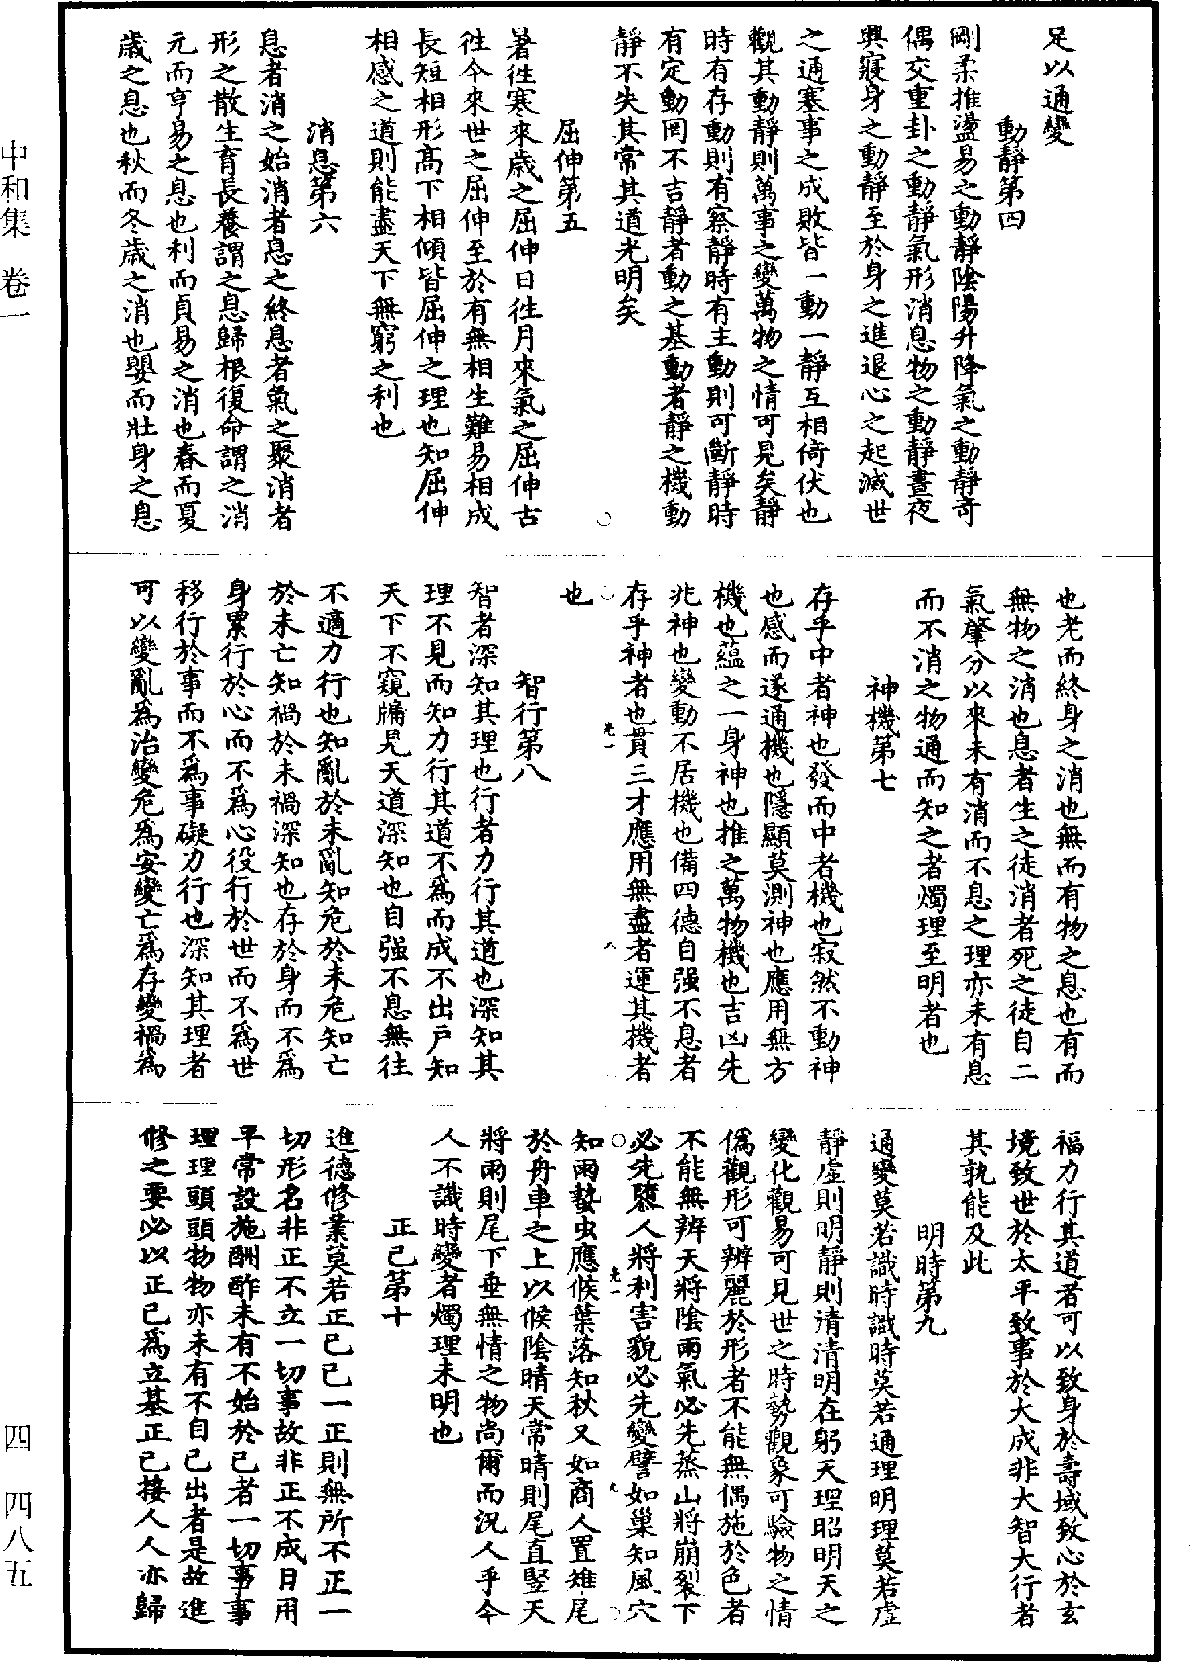 足以通變
動靜第四
剛柔推盪易之動靜陰陽升降氣之動靜奇
偶交重卦之動靜氣形消息物之動靜晝夜
興寢身之動靜至於身之進退心之起滅世
之通塞事之成敗皆一動一靜互相倚伏也
觀其動靜則萬事之變萬物之情可見矣靜
時有存動則有察靜時有主動則可斷靜時
有定動罔不吉靜者動之基動者靜之機動
靜不失其常其道光明矣
屈伸第五
暑往寒來歲之屈伸日往月來氣之屈伸古
往今來世之屈伸至於有無相生難易相成
長短相形高下相傾皆屈伸之理也知屈伸
相感之道則能盡天下無窮之利也
消息第六
息者消之始消者息之終息者氣之聚消者
形之散生育長養謂之息歸根復命謂之消
元而亨易之息也利而貞易之消也春而夏
歲之息也秋而冬歲之消也嬰而壯身之息
也老而終身之消也無而有物之息也有而
無物之消也息者生之徒消者死之徒自二
氣肇分以來未有消而不息之理亦未有息
而不消之物通而知之者燭理至明者也
神機第七
存乎中者神也發而中者機也寂然不動神
也感而遂通機也隱顯莫測神也應用無方
機也蘊之一身神也推之萬物機也吉凶先
兆神也變動不居機也備四德自强不息者
存乎神者也貫三才應用無盡者運其機者
也
智行第八
智者深知其理也行者力行其道也深知其
理不見而知力行其道不爲而成不出戶知
天下不窺牖見天道深知也自强不息無往
不適力行也知亂於未亂知危於未危知亡
於未亡知禍於未禍深知也存於身而不爲
身累行於心而不爲心役行於世而不爲世
移行於事而不爲事礙力行也深知其理者
可以變亂爲治變危爲安變亡爲存變禍爲
福力行其道者可以致身於壽域致心於玄
境致世於太平致事於大成非大智大行者
其孰能及此
明時第九
通變莫若識時識時莫若通理明理莫若虛
靜虛則明靜則清清明在躬天理昭明天之
變化觀易可見世之時勢觀象可驗物之情
僞觀形可辨麗於形者不能無偶施於色者
不能無辨天將陰雨氣必先蒸山將崩裂下
必先隳人將利害貌必先變譬如巢知風穴
知雨蟄虫應候葉落知秋又如商人置雉尾
於舟車之上以候陰晴天常晴則尾直竪天
將雨則尾下垂無情之物尚爾而況人乎今
人不識時變者燭理未明也
正己第十
進德修業莫若正己己一正則無所不正一
切形名非正不立一切事故非正不成日用
平常設施酬酢未有不始於己者一切事事
理理頭頭物物亦未有不自己出者是故進
修之要必以正己爲立基正己接人人亦歸
中和集　卷一
四　四八五